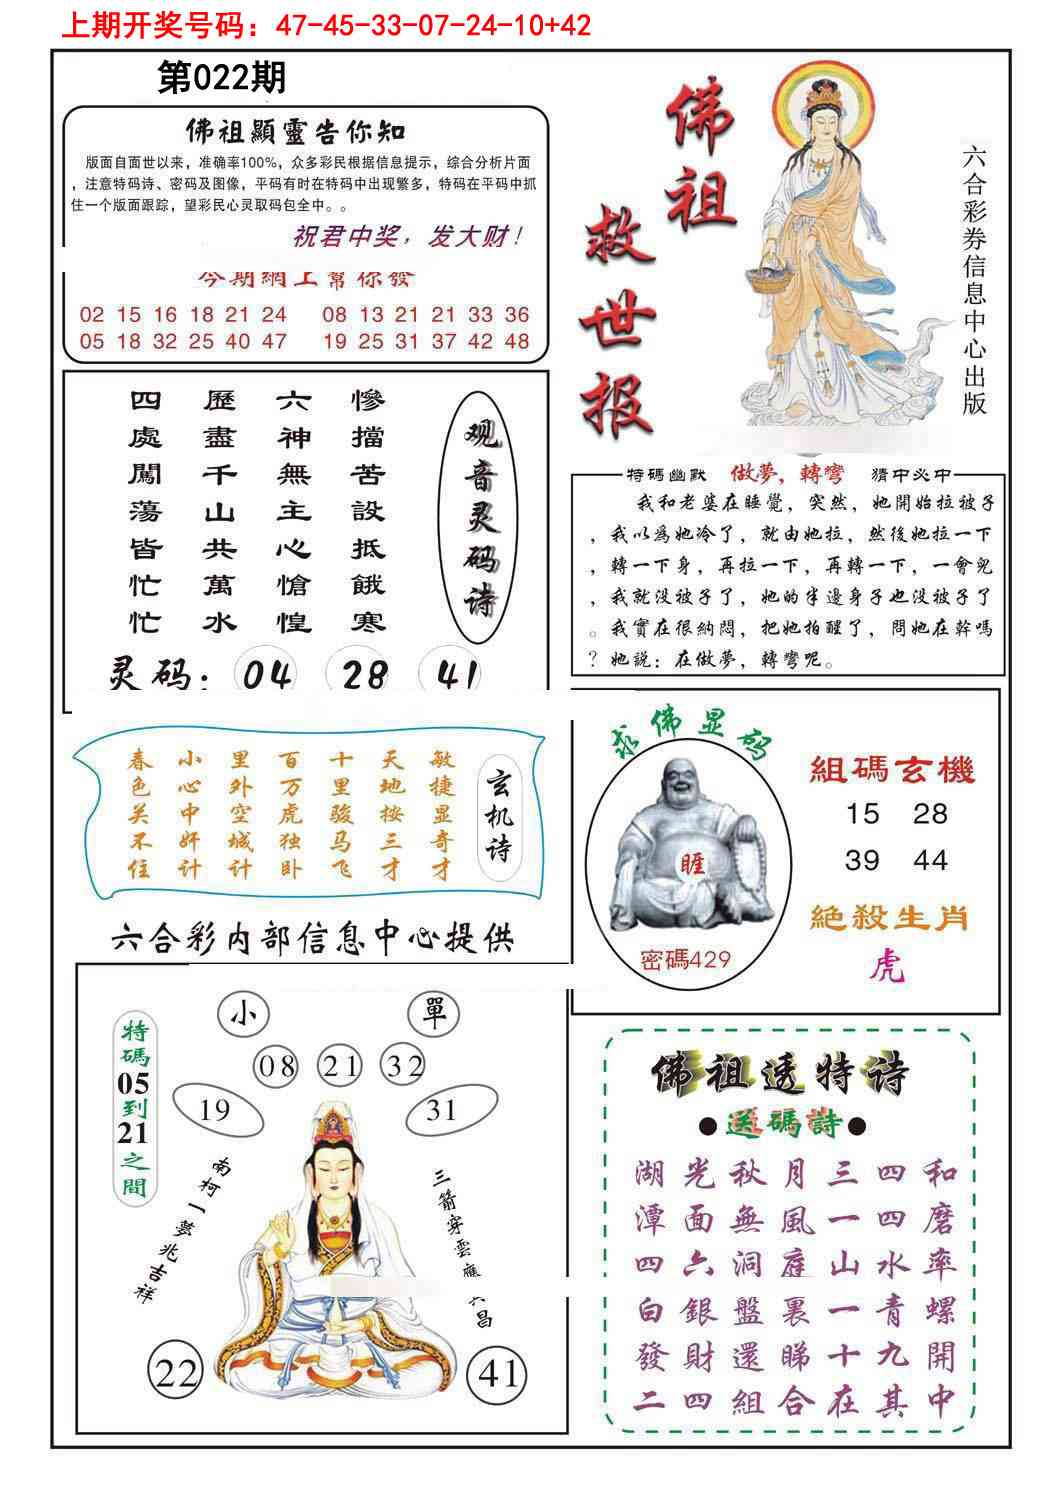 上期开奖号码：47-45-33-07-24-10+42
第022期
佛祖顯靈告你知
版面自面世以来，准确率100%，众多彩民根据信息提示，综合分析片面
，注意特码诗、密码及图像，平码有时在特码中出现繁多，特码在平码中抓
住一个版面跟踪，望彩民心灵取码包全中。。
祝君中奖，发大财！
今期網上幫你發
02 15 16 18 21 24 08 13 21 21 33 36
05 18 32 25 40 47 19 25 31 37 42 48
佛祖
救世报
六合彩券信息中心出版
四處闖蕩皆忙忙
歷盡千山共萬水
六神無主心愴惶
慘擋苦設抵餓寒
观音灵码诗
灵码：04 28 41
特碼幽默 做夢，轉彎 猜中必中
我和老婆在睡覺，突然，她開始拉被子
，我以爲她冷了，就由她拉，然後她拉一下
，轉一下身，再拉一下，再轉一下，一會兒
，我就没被子了，她的半邊身子也没被子了
。我實在很納悶，把她拍醒了，問她在幹嗎
？她説：在做夢，轉彎呢。
春色关不住
小心中奸计
里外空城计
百万虎独卧
十里骏马飞
天地按三才
敏捷显奇才
玄机诗
六合彩内部信息中心提供
求佛显码
睚
密碼429
組碼玄機
15 28
39 44
絕殺生肖
虎
特碼05到21之間
小 單
08 21 32
19 31
南柯一夢兆吉祥
三箭穿雲應六昌
22 41
佛祖透特诗
●送碼詩●
湖光秋月三四和
潭面無風一四磨
四六洞庭山水率
白銀盤裏一青螺
發財還睇十九開
二四組合在其中